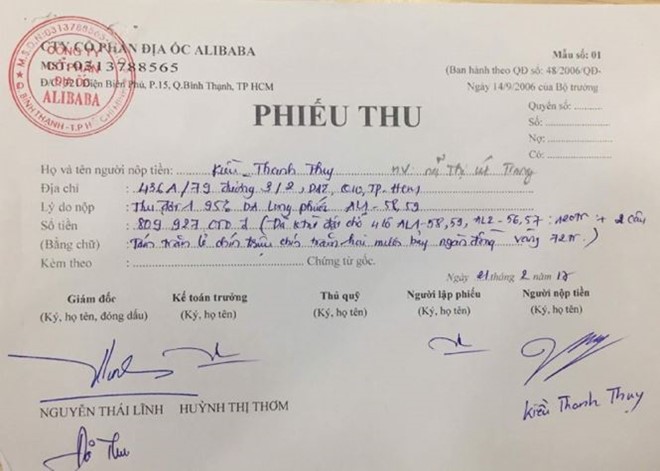 CTY CỔ PHẦN ĐỊA ỐC ALIBABA
MST:0313788565
Đ/C: 320 Điện Biên Phủ, P.15, Q.Bình Thạnh, TP HCM
M.S.D.N:0313788565
CÔNG TY
CỔ PHẦN
ĐỊA ỐC
ALIBABA
Q. BÌNH THẠNH - T.P HỒ CHÍ MINH
Mẫu số: 01
(Ban hành theo QĐ số: 48/2006/QĐ-
Ngày 14/9/2006 của Bộ trưởng
PHIẾU THU
Quyển số:
Số:
Nợ:
Có:
Họ và tên người nộp tiền: Kiều Thanh Thuy NV
Địa chỉ : 436A/79 đường 3/2, Q10, TP. HCM
Lý do nộp : Thu đợt 1 95% DA Long phước AL1-58,59
Số tiền : 809 927 000 đ ( 416 AL1-58,59, AL2-56,57 : +
(Bằng chữ) : Tám trăm lẻ chín triệu chín trăm hai mươi bảy ngàn đồng
Kèm theo : Chứng từ gốc.
Ngày 21 tháng 2 năm 17
Giám đốc Kế toán trưởng Thủ quỹ Người lập phiếu Người nộp tiền
(Ký, họ tên, đóng dấu) (Ký, họ tên) (Ký, họ tên) (Ký, họ tên) (Ký, họ tên)
NGUYỄN THÁI LĨNH HUỲNH THỊ THƠM
Kiều Thanh Thuy